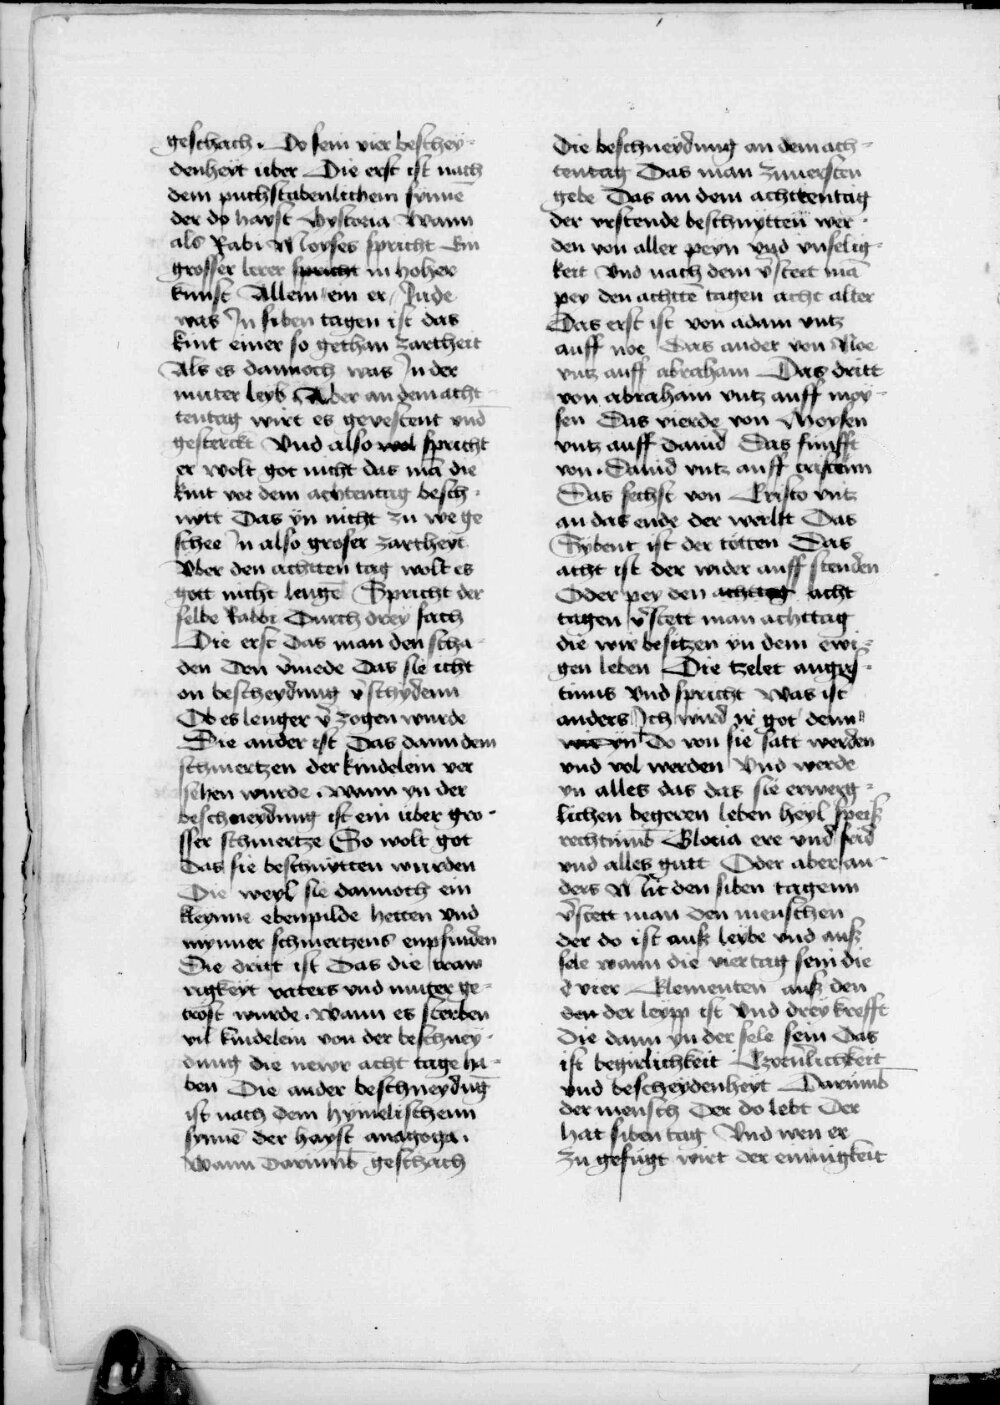 geschach. Do sein vier beschey-
denheyt uber Die erst ist nach
dem puchstabenlichem synne
der do hayst hystoria Wann
als Rabi Moyses spricht Ein
grosser lerer spricht in hoher
kunst Allein ein er Jude
was In siben tagen ist das
kint einer so gethan zartheit
Als es dannoch was In der
muter leyb Aber an dem acht-
tentag wirt es gevestent vnd
gesterckt Vnd also wol spricht
er wolt got nicht das mā die
kint vor dem achtentag besch-
nytt Das yn nicht zu we ge
schee In also groser zartheyt
Vber den achtten tag wolt es
gott nicht lengē Spricht der
selbe Rabbi Durch drey sach
Die erst das man den scha-
den Den v̄miede Das sie icht
on bescheydung v̄schydenn
Ob es lenger v̄zogen wurde
Die ander ist Das dann dem
schmertzen der kindelein vor
sehen wurde. Wann yn der
beschneydung ist ein uber gro-
sser schmertze So wolt got
Das sie beschnytten wurden
Die weyl sie dannoch ein
kleynne ebenpilde hetten vnd
mynner schmertzens enpfinden
Die dritt ist Das die traw
rigkeyt vaters vnd muter ge-
trost wurde. Wann es sterben
vil kindelein von der beschney-
dung die newr acht tage ha-
ben Die ander beschneydūg
ist nach dem hymelischenn
synnē der hayst anagoga.
Wann darumb geschach
Die beschneydung an dem ach-
tentag Das man zuuersten
gebe Das an dem achttentag
der vrstende beschnytten wer-
den von aller peyn vnd vnselig-
keit Vnd nach dem v̄stett mā
pey den achttē tagen acht alter
Das erst ist von adam vntz
auff noe Das ander von Noe
vntz auff abraham Das dritt
von abraham vntz auff moy-
sen Das vierde von Moysen
vntz auff Dauid Das funfft
von. Dauid vntz auff cristenn
Das sechst von Cristo vntz
an das ende der werltt Das
Sybent ist der totten Das
acht ist der wider auff stenden
Oder pey den achttag acht
tagen v̄stett man achttag
die wir besitzen yn dem ewi-
gen leben Die tzelet augus-
tinus Vnd spricht Was ist
anders Ich wird ir got denn
wie yn Do von sie satt werden
vnd vol werden Vnd werde
yn alles das das sie
lichen begeren leben heyl speisz
Gloria ere vnd frid
vnd alles gutt Oder aber an-
ders Mit den siben tagenn
v̄stett man den menschen
der do ist ausz leybe vnd ausz
sele wann die vier tag sein die
d vier Elementen ausz den
den der leypp ist Vnd drey krefft
Die dann yn der sele sein Das
ist begirlichkeit Czornlichkeit
vnd bescheydenheyt Darumb
der mensch Der do lebt Der
hat siben tag Vnd wen er
zu gefugt wirt der einnigkeit